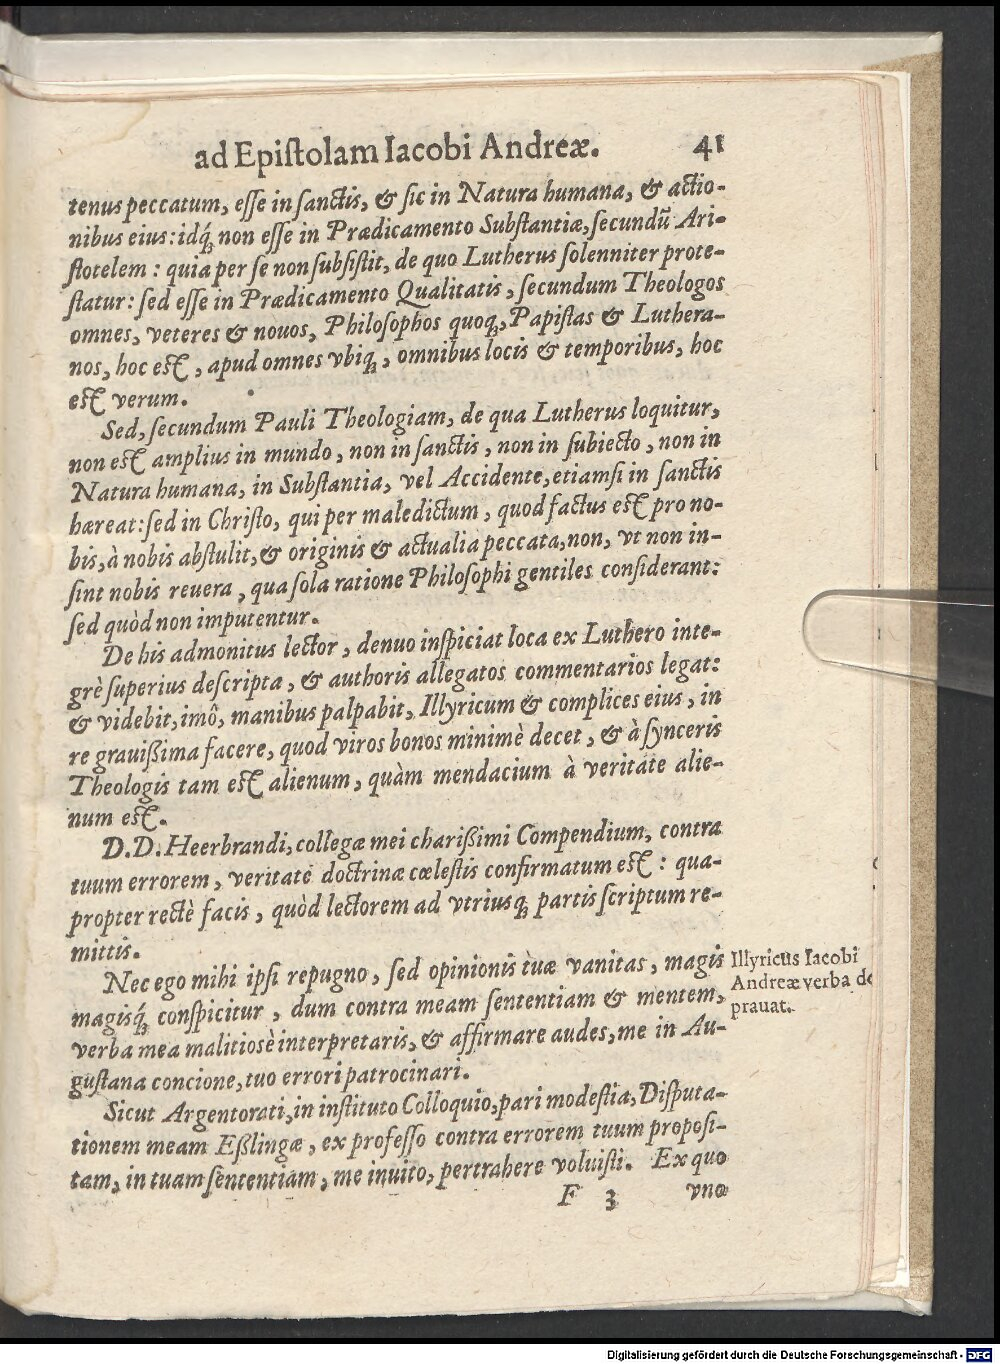 ad Epiſtolam Iacobi Andreæ. 41
tenus peccatum, eſſe in ſanctis, & ſic in Natura humana, & actio-
nibus eius: idq́; non eſſe in Prædicamento Subſtantiæ, ſecundũ Ari-
ſtotelem: quia per ſe non ſubſiſtit, de quo Lutherus ſolenniter prote-
ſtatur: ſed eſſe in Prædicamento Qualitatis, ſecundum Theologos
omnes, veteres & nouos, Philoſophos quoq;, Papiſtas & Luthera-
nos, hoc eſt, apud omnes vbiq;, omnibus locis & temporibus, hoc
eſt verum.
Sed, ſecundum Pauli Theologiam, de qua Lutherus loquitur,
non eſt amplius in mundo, non in ſanctis, non in ſubiecto, non in
Natura humana, in Subſtantia, vel Accidente, etiamſi in ſanctis
hæreat: ſed in Chriſto, qui per maledictum, quod factus eſt pro no-
bis, à nobis abſtulit, & originis & actualia peccata, non, vt non in-
ſint nobis reuera, qua ſola ratione Philoſophi gentiles conſiderant:
ſed quòd non imputentur.
De his admonitus lector, denuo inſpiciat loca ex Luthero inte-
grè ſuperius deſcripta, & authoris allegatos commentarios legat:
& videbit, imô, manibus palpabit, Illyricum & complices eius, in
re grauißima facere, quod viros bonos minimè decet, & à ſynceris
Theologis tam eſt alienum, quàm mendacium à veritate alie-
num eſt.
D. D. Heerbrandi, collegæ mei charißimi Compendium, contra
tuum errorem, veritatē doctrinæ cœleſtis confirmatum eſt: qua-
propter rectè facis, quòd lectorem ad vtriusq; partis ſcriptum re-
mittis.
Nec ego mihi ipſi repugno, ſed opinionis tuæ vanitas, magis
magisq́; conſpicitur, dum contra meam ſententiam & mentem,
verba mea malitiosè interpretaris, & affirmare audes, me in Au-
guſtana concione, tuo errori patrocinari.
Illyricus Iacobi
Andreæ verba de
prauat.
Sicut Argentorati, in inſtituto Colloquio, pari modeſtia, Diſputa-
tionem meam Eßlingæ, ex profeſſo contra errorem tuum propoſi-
tam, in tuam ſententiam, me inuito, pertrahere voluiſti. Ex quo
F 3 vno
Digitalisierung gefördert durch die Deutsche Forschungsgemeinschaft - DFG